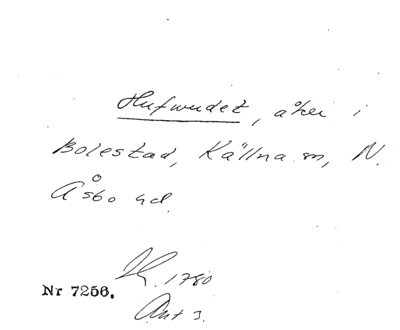 Hufwudet, åker i
Bolestad, Källna sn, N.
Åsbo hd.
1780
Nr 7256.
Akt 3.